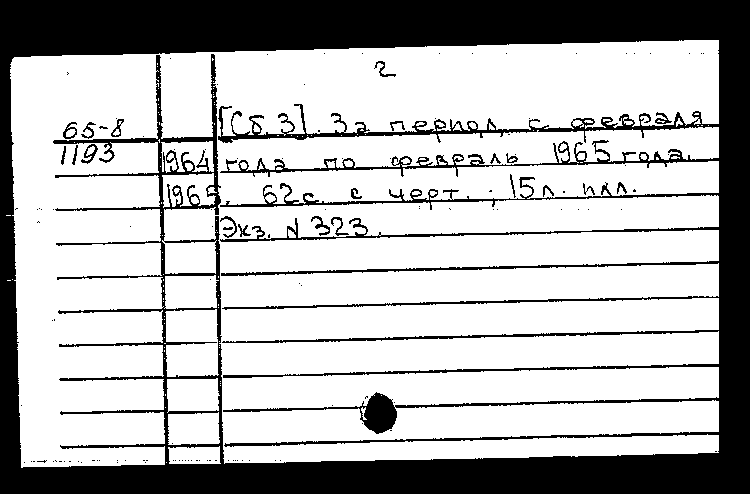 2
65-8 [Сб. 3]. За период с февраля
1193 1964 года по февраль 1965 года.
1965. 62с. с черт.; 15л. илл.
Экз. N 323.